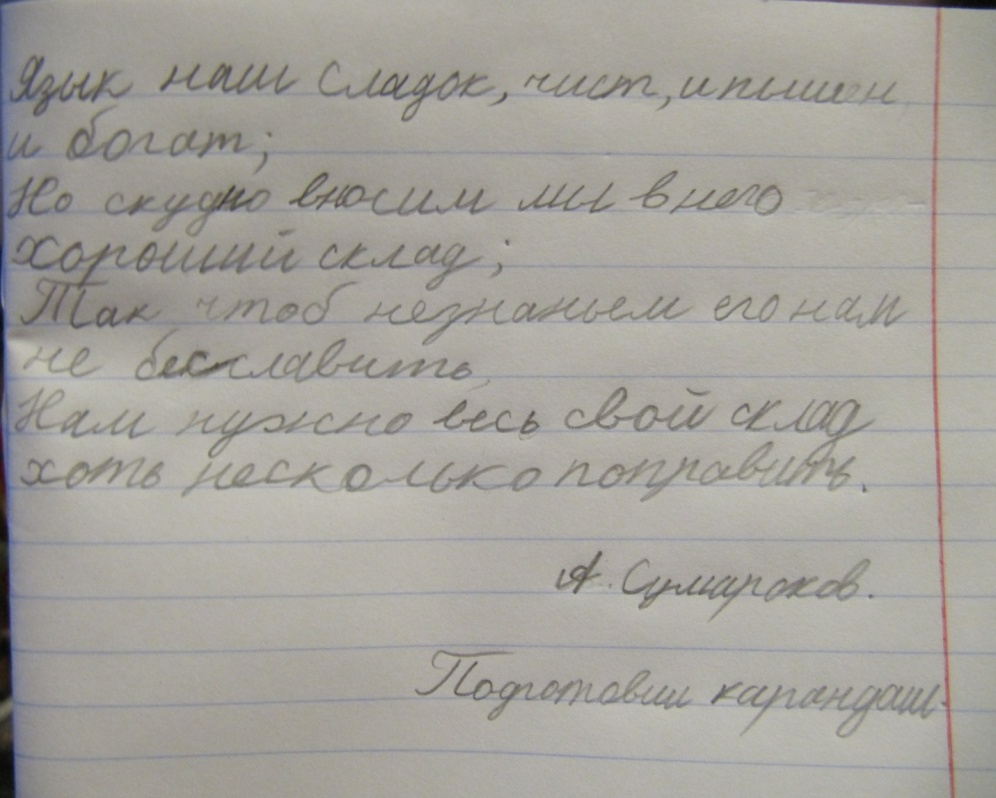 Язык наш сладок, чист, и пышен,
и богат;
Но скудно вносим мы в него
хороший склад;
Так чтоб незнаньем его нам
не бесславить,
Нам нужно весь свой склад
хоть несколько поправить.
А. Сумароков.
Подготовил карандаш-